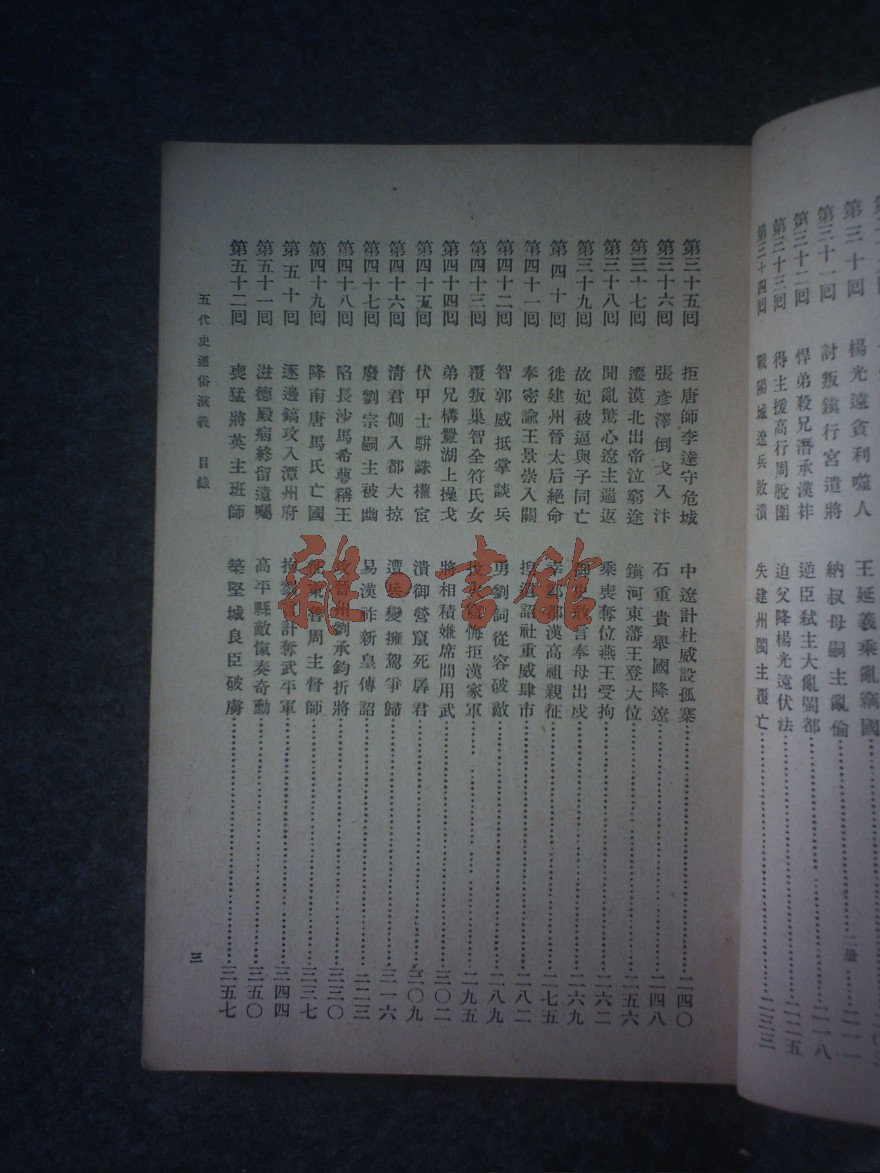 第三十回 楊光遠貪利噬人 王延義乘亂竊國
第三十一回 討叛鎭行宮遣將 納叔母嗣主亂倫 二一一
第三十二回 悍弟殺兄潛承漢祚 逆臣弑主大亂閩都 二一八
第三十三回 得主援高行周脫圍 迫父降楊光遠伏法 二二五
第三十四回 戰陽城遼兵敗潰 失建州閩主覆亡 二三三
第三十五回 拒唐師李達守危城 中遼計杜威設孤寨 二四〇
第三十六回 張彥澤倒戈入汴 石重貴舉國降遼 二四八
第三十七回 遷漠北出帝泣窮途 鎭河東藩王登大位 二五六
第三十八回 聞亂驚心遼主遄返 乘喪奪位燕王受拘 二六二
第三十九回 故妃被逼與子同亡 言奉母出戍 二六九
第四十回 徙建州晉太后絕命 都漢高祖親征 二七五
第四十一回 奉密諭王景崇入關 詔社重威肆市 二八二
第四十二回 智郭威抵掌談兵 勇劉詞從容破敵 二八九
第四十三回 覆叛巢智全符氏女 悔拒漢家軍 二九五
第四十四回 弟兄構釁湖上操戈 將相積嫌席間用武 三〇二
第四十五回 伏甲士駢誅權宦 潰御營竄死孱君 三〇九
第四十六回 淸君側入都大掠 遭兵變擁駕爭歸 三一六
第四十七回 廢劉宗嗣主被幽 易漢祚新皇傳詔 二二三
第四十八回 陷長沙馬希萼稱王 州劉承鈞折將 三三〇
第四十九回 降南唐馬氏亡國 征東魯周主督師 三三七
第五十回 逐邊鎬攻入潭州府 拘劉 計奪武平軍 三四四
第五十一回 滋德殿病終留遺囑 高平縣敵愾奏奇勳 三五〇
第五十二回 喪猛將英主班師 築堅城良臣破虜 三五七
五代史通俗演義 目錄
三
雜·書館